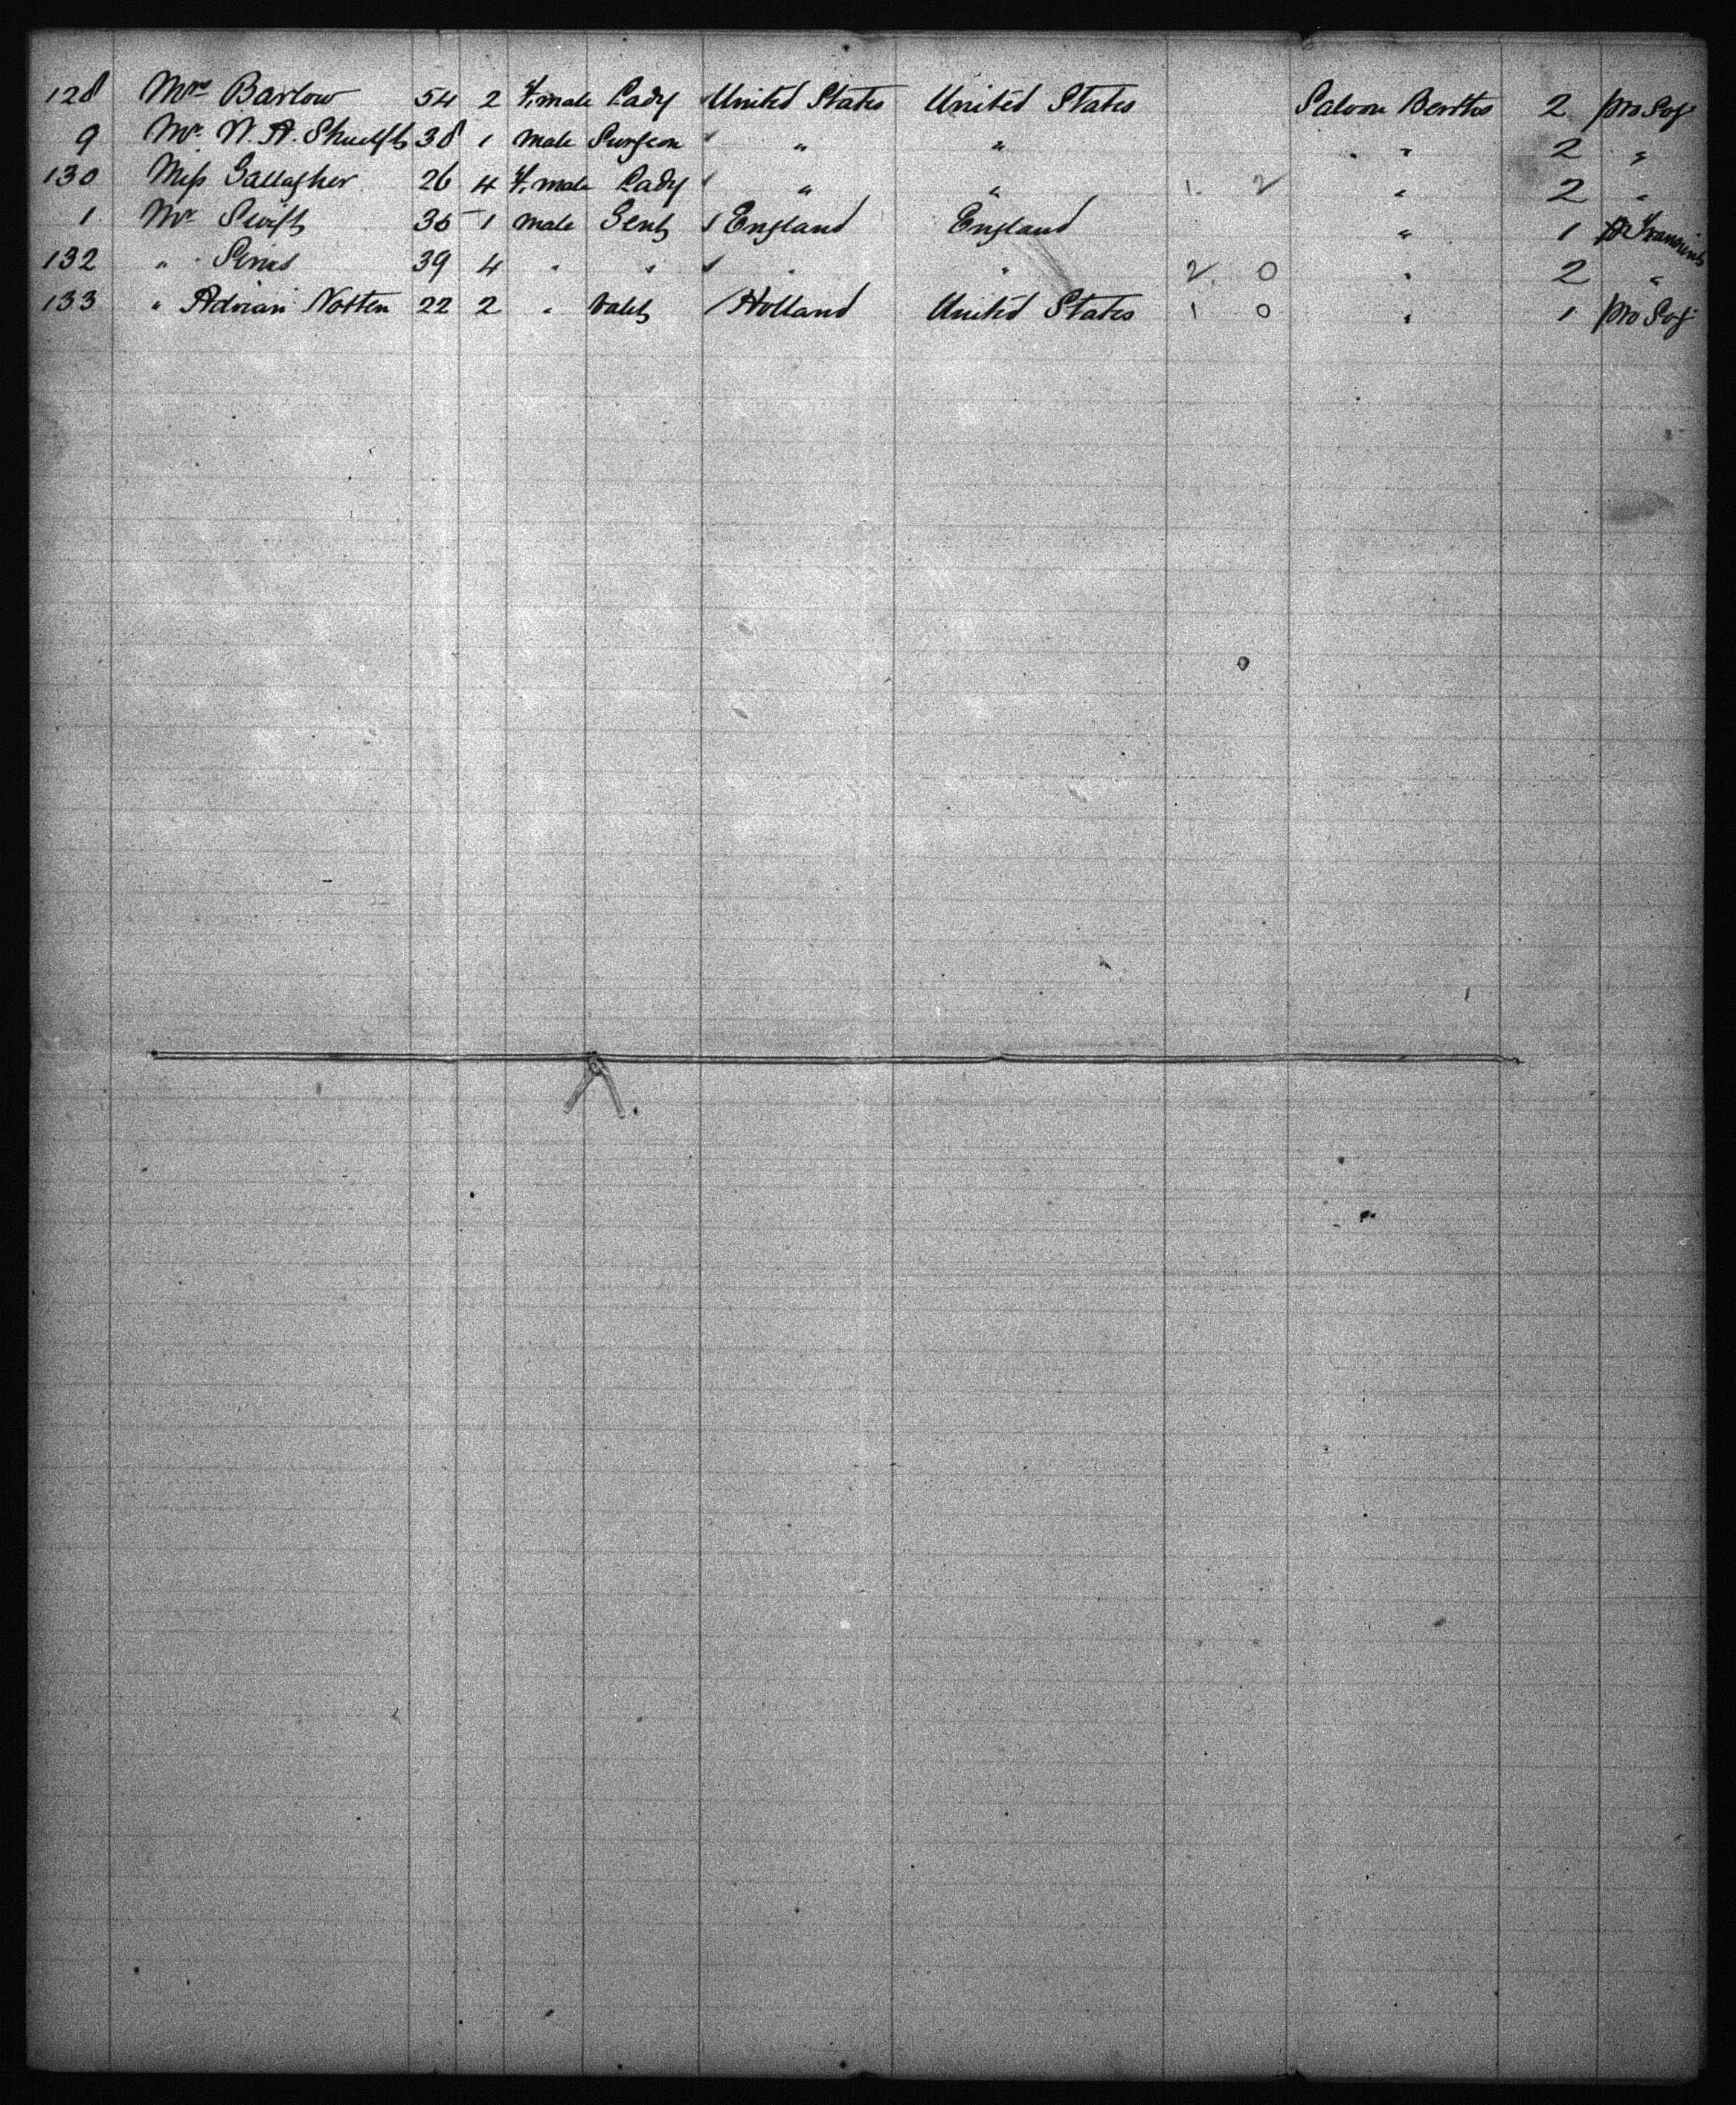 128 Mrs Barlow 54 2 Female Lady United States United States Saloon Berths 2 pro Soj
9 Mr. W. A. 38 1 male Surgeon " " " " 2 "
130 Miss Gallagher 26 4 Female Lady " " 1 2 " 2 "
1 Mr Swift 35 1 male Gent England England " 1 Transient
132 " 39 4 " " " " 2 0 " 2 "
133 " Adrian Notten 22 2 " Valet Holland United States 1 0 " 1 pro Soj